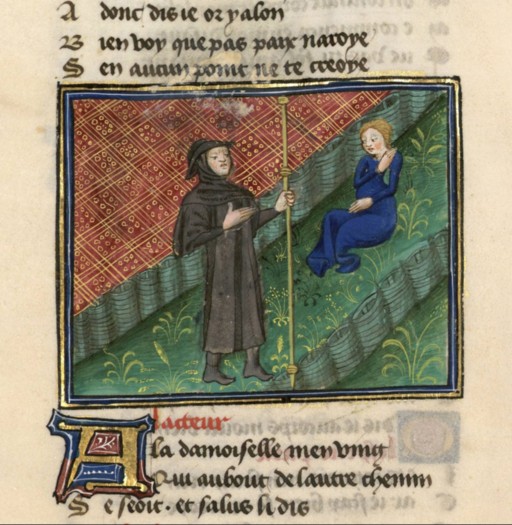 A donc dis ie or y alon
B ien voy que pas paix naroye
S en aucun point ne te creoye
Lacteur
A la damoiselle men ving
Q ui au bout de lautre chemin
S e seoit · et salus li dis